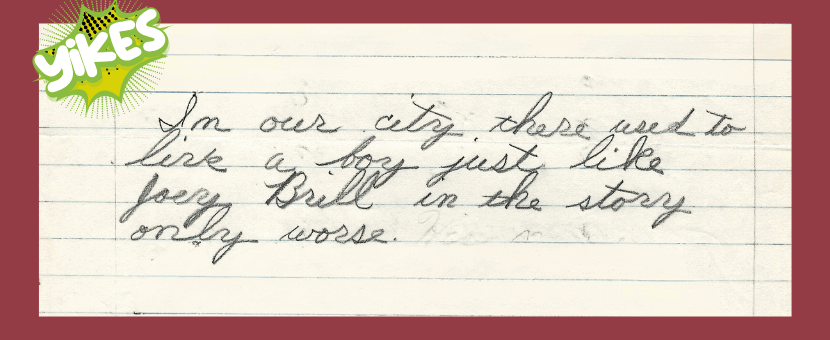 YiKES
In our city there used to
live a boy just like
Joey Brill in the story
only worse.